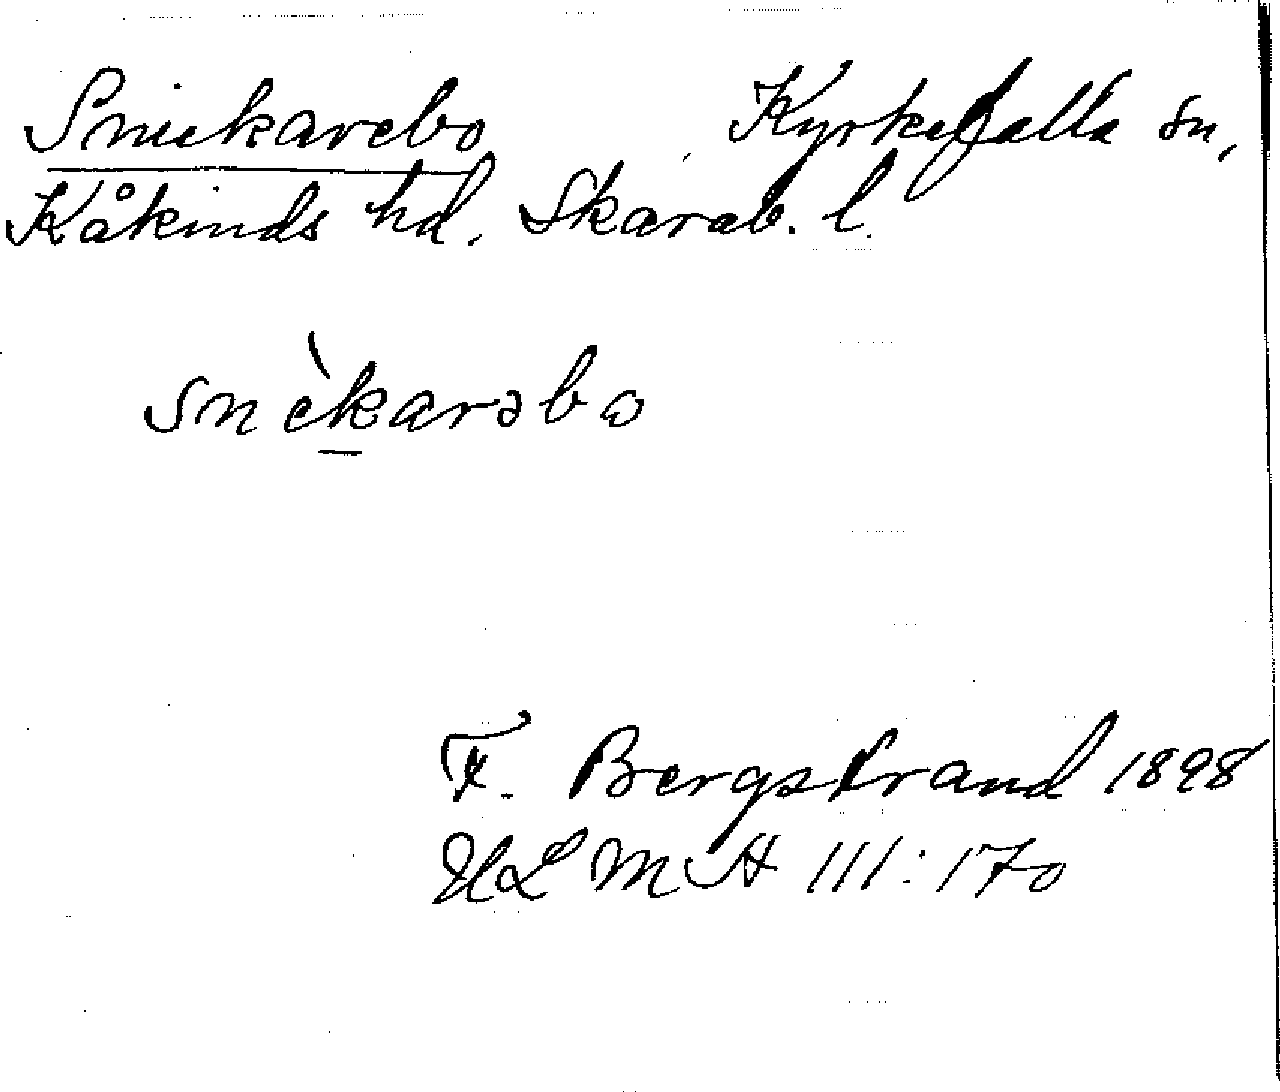 Snickarebo Kyrkefalla sn,
Kåkinds hd. Skarab. l.
snèkarəbo
F. Bergstrand 1898
VLMA III:170